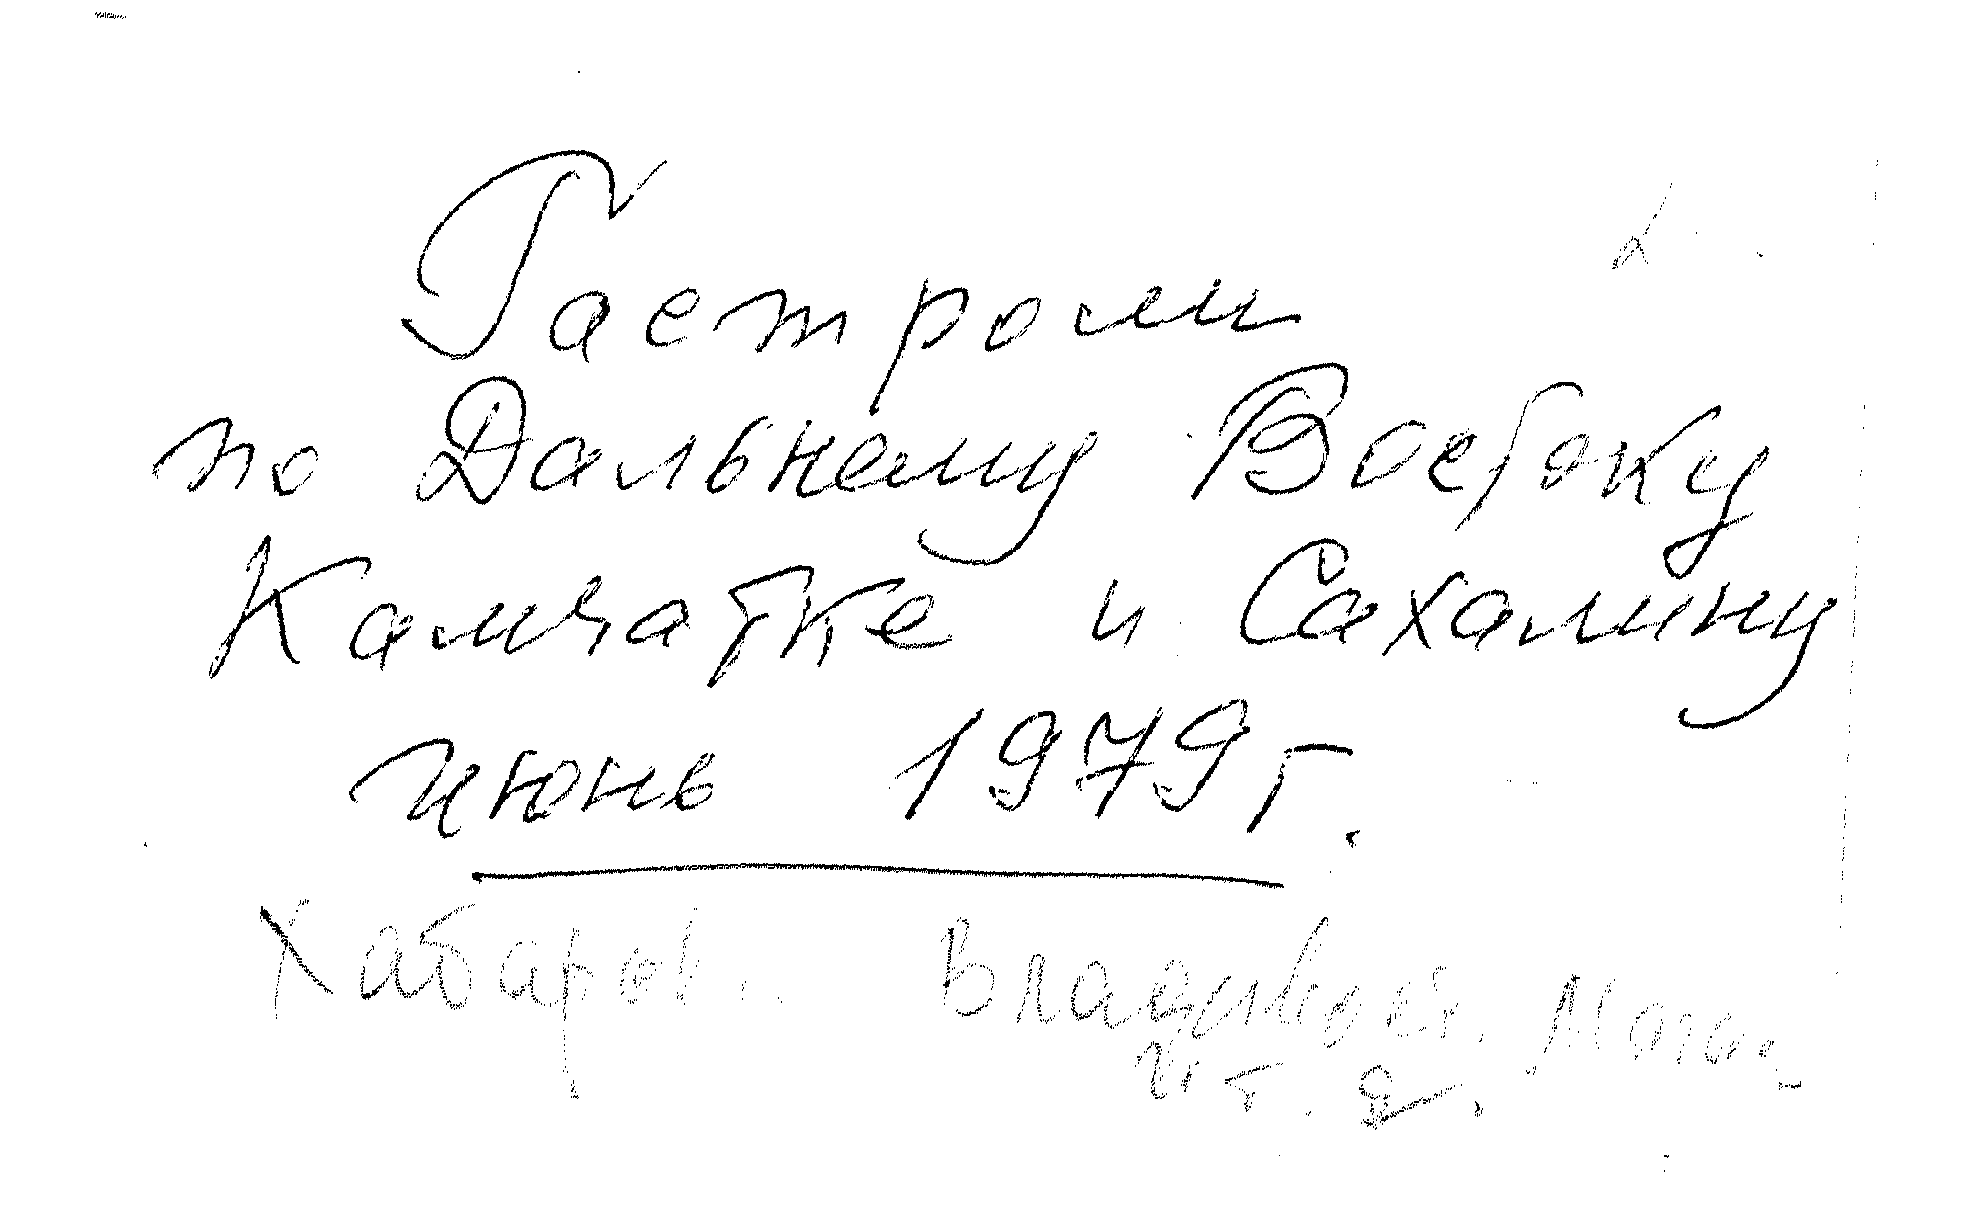 Гастроли
по Дальнему Востоку
Камчатке и Сахалину
июнь 1979г.
Хабаров. Владивост.
и т. д.